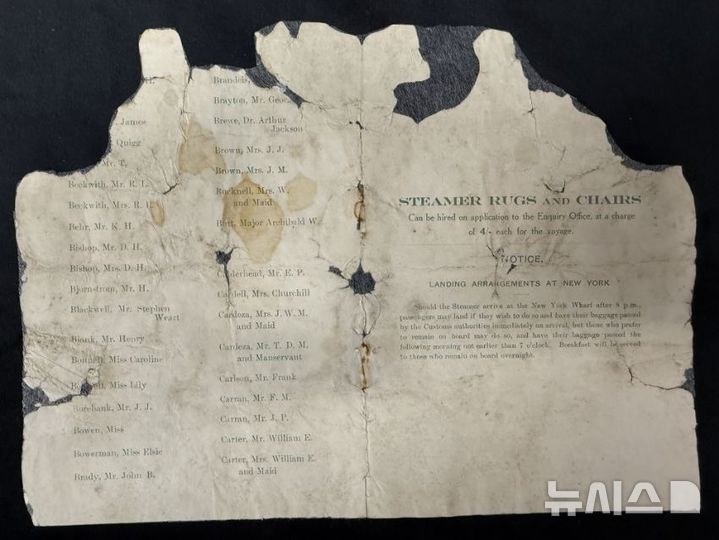 H.
James
Quigg
Mr. T.
Beckwith, Mr. R. L.
Beckwith, Mrs. R. L.
Behr, Mr. K. H.
Bishop, Mr. D. H.
Bishop, Mrs. D. H.
Bjornstrom, Mr. H.
Blackwell, Mr. Stephen
Weart
Blank, Mr. Henry
Bonnell, Miss Caroline
Miss Lily
Borebank, Mr. J. J.
Bowen, Miss
Bowerman, Miss Elsie
Brady, Mr. John B.
Brandeis,
Brayton, Mr. Geo.
Brewe, Dr. Arthur
Jackson
Brown, Mrs. J. J.
Brown, Mrs. J. M.
Bucknell, Mrs. W.
and Maid
Butt, Major Archibald W.
Calderhead, Mr. E. P.
Cardell, Mrs. Churchill
Cardoza, Mrs. J. W. M.
and Maid
Cardeza, Mr. T. D. M.
and Manservant
Carlson, Mr. Frank
Carran, Mr. F. M.
Carran, Mr. J. P.
Carter, Mr. William E.
Carter, Mrs. William E.
and Maid
STEAMER RUGS AND CHAIRS
Can be hired on application to the Enquiry Office, at a charge
of 4/- each for the voyage.
NOTICE.
LANDING ARRANGEMENTS AT NEW YORK
Should the Steamer arrive at the New York Wharf after 8 p.m.,
passengers may land if they wish to do so and have their baggage passed
by the Customs authorities immediately on arrival, but those who prefer
to remain on board may do so, and have their baggage passed the
following morning not earlier than 7 o'clock. Breakfast will be served
to those who remain on board overnight.
뉴시스